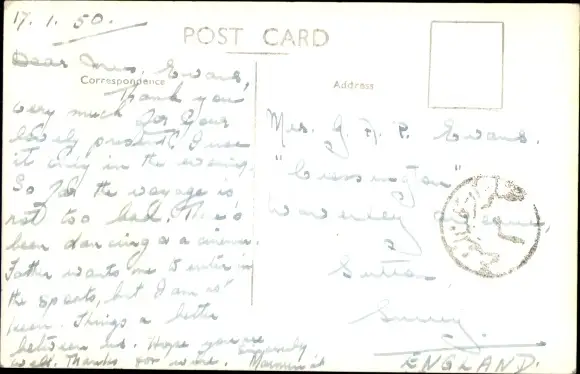 17.1.50.
POST CARD
Correspondence
Address
Dear Mrs. Evans,
Thank you
very much for your
lovely present. I use
it only in the evening.
So far the voyage is
not too bad. There's
been dancing a cinema.
Father wants me to enter in
the sports, but I am not
keen. Things a better
between us. Hope you are
well. Thanks for wire. Sincerely
Mrs. G. A. P. Evans.
"Cressington"
Waverley Avenue,
Sutton
Surrey.
ENGLAND.